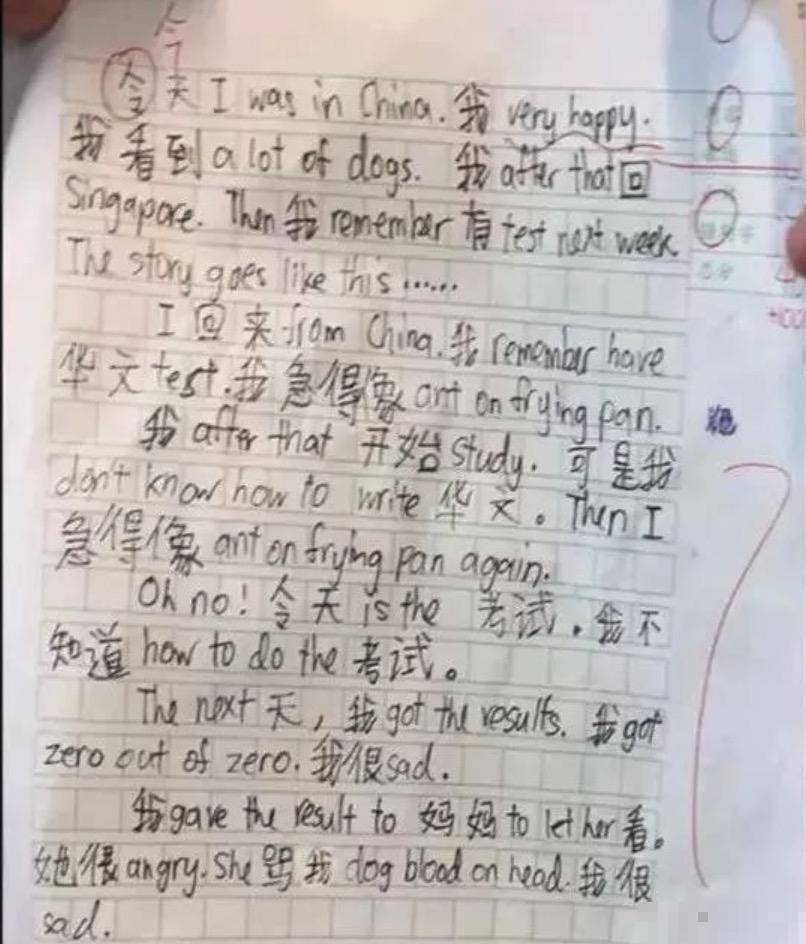 今
令天 I was in China. 我 very happy.
我看到 a lot of dogs. 我 after that 回
Singapore. Then 我 remember 有 test next week
The story goes like this......
I 回来 from China. 我 remember have
华文 test. 我急得像 ant on frying pan.
我 after that 开始 study. 可是我
don't know how to write 华文。Then I
急得像 ant on frying pan again.
Oh no! 令天 is the 考试. 我不
知道 how to do the 考试。
The next 天, 我 got the results. 我 got
zero out of zero. 我很 sad.
我 gave the result to 妈妈 to let her 看。
她很 angry. She 骂我 dog blood on head. 我很
sad.